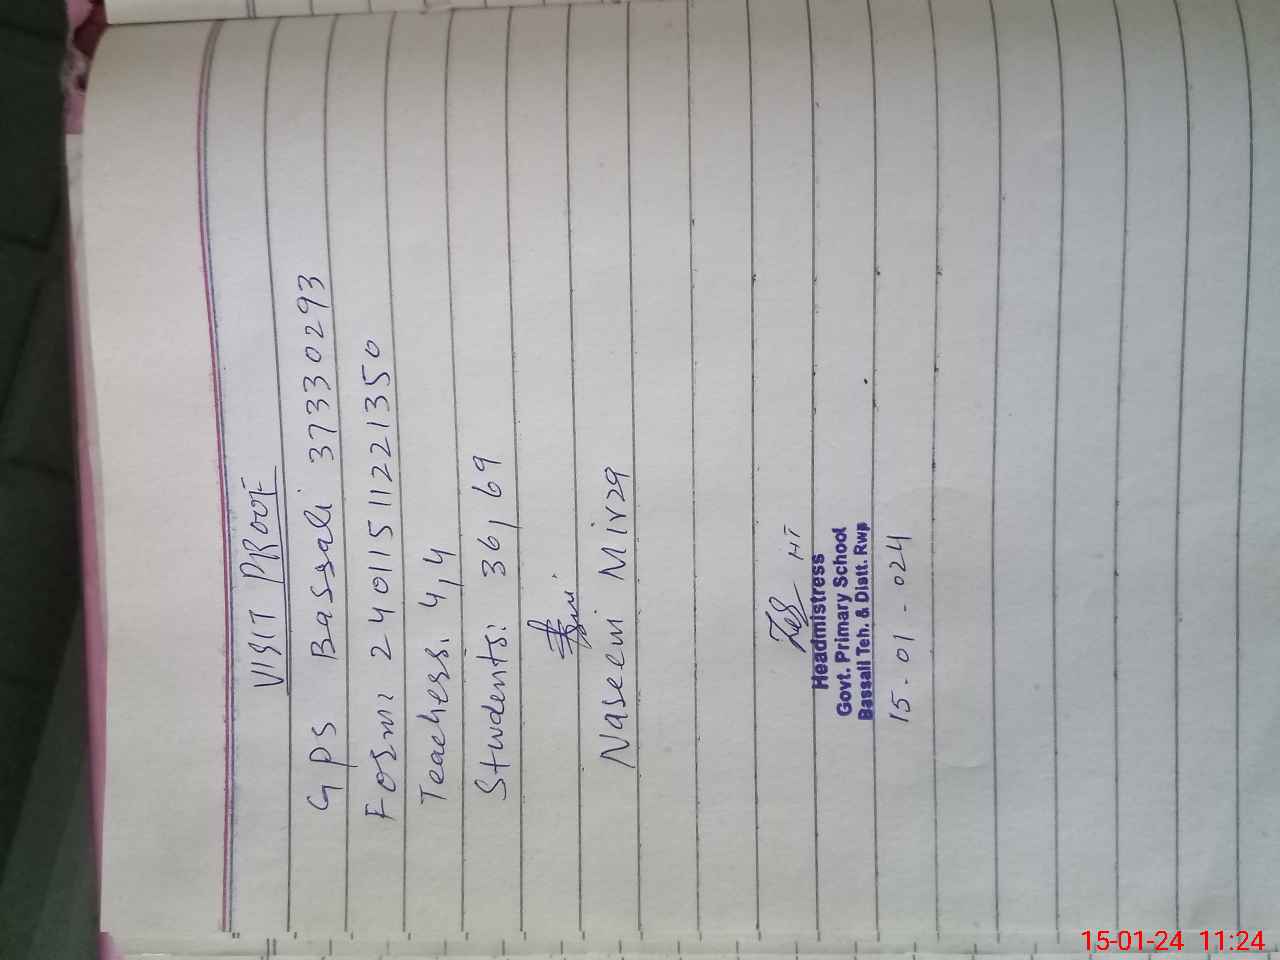 VISIT PROOF
GPS Bassali 37330293
Form: 240115112221350
Teachers. 4,4
Students: 36, 69
Naseem Mirza
HT
Headmistress
Govt. Primary School
Bassali Teh. & Distt. Rwp
15-01-024
15-01-24 11:24